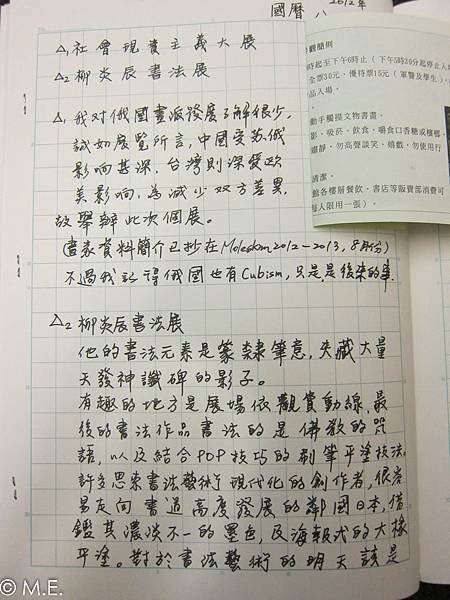 2012年
國曆 八
△1 社會現實主義大展
△2 柳炎辰書法展
△1 我对俄國畫派發展了解很少,
誠如展覧所言,中國受苏俄
影响甚深,台灣則深受歐
美影响,為減少双方差異,
故舉辦此次個展。
(畫家資料簡介已抄在Moleskin2012-2013, 8月份)
不過我記得俄國也有Cubism,只是是後來的事.
△2 柳炎辰書法展
他的書法元素是篆隸筆意,失藏大量
天發神讖碑的影子。
有趣的地方是展場依觀賞動線,最
後的書法作品書法的是佛教的咒
語,以及結合POP技巧的刷筆平塗技法。
許多思索書法藝術現代化的創作者,很容
易走向書道高度發展的鄰國日本,借
鑑其濃淡不一的墨色,及海報式的大樣
平塗。對於書法藝術的明天該是
參觀簡則
時起至下午6時止(下午5時30分起停止入
全票30元,優待票15元(軍警及學生)
品入場。
動手觸摸文物書畫。
影、吸菸、飲食、嚼食口香糖或檳榔
肅靜,勿高聲談笑、嬉戲,勿使用行
清潔。
館各樓層餐飲、書店等販賣部消費可
每人限用一張)。
© M.E.